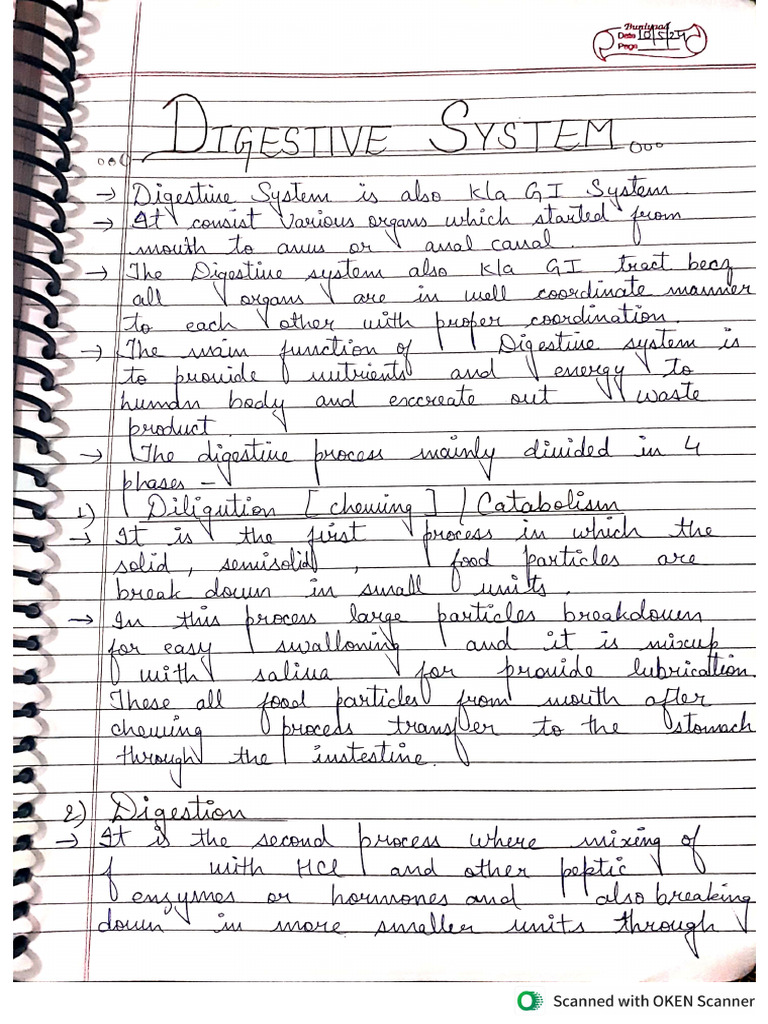 Thinkpad
Date 10/5/24
Page
DIGESTIVE SYSTEM
→ Digestive System is also k/a GI System
→ It consist Various organs which started from
mouth to anus or anal canal.
→ The Digestive system also k/a GI tract becz
all organs are in well coordinate manner
to each other with proper coordination.
→ The main function of Digestive system is
to provide nutrients and energy to
human body and excreate out waste
product.
→ The digestive process mainly divided in 4
phases -
1) Diligution [chewing] / Catabolism
→ It is the first process in which the
solid, semisolid, food particles are
break down in small units.
→ In this process large particles breakdown
for easy swalloning and it is mixup
with saliva for provide lubrication.
These all food particles from mouth after
chewing process transfer to the stomach
through the instestine.
2) Digestion
→ It is the second process where mixing of
f with HCl and other peptic
enzymes or hormones and also breaking
down in more smaller units through
Scanned with OKEN Scanner